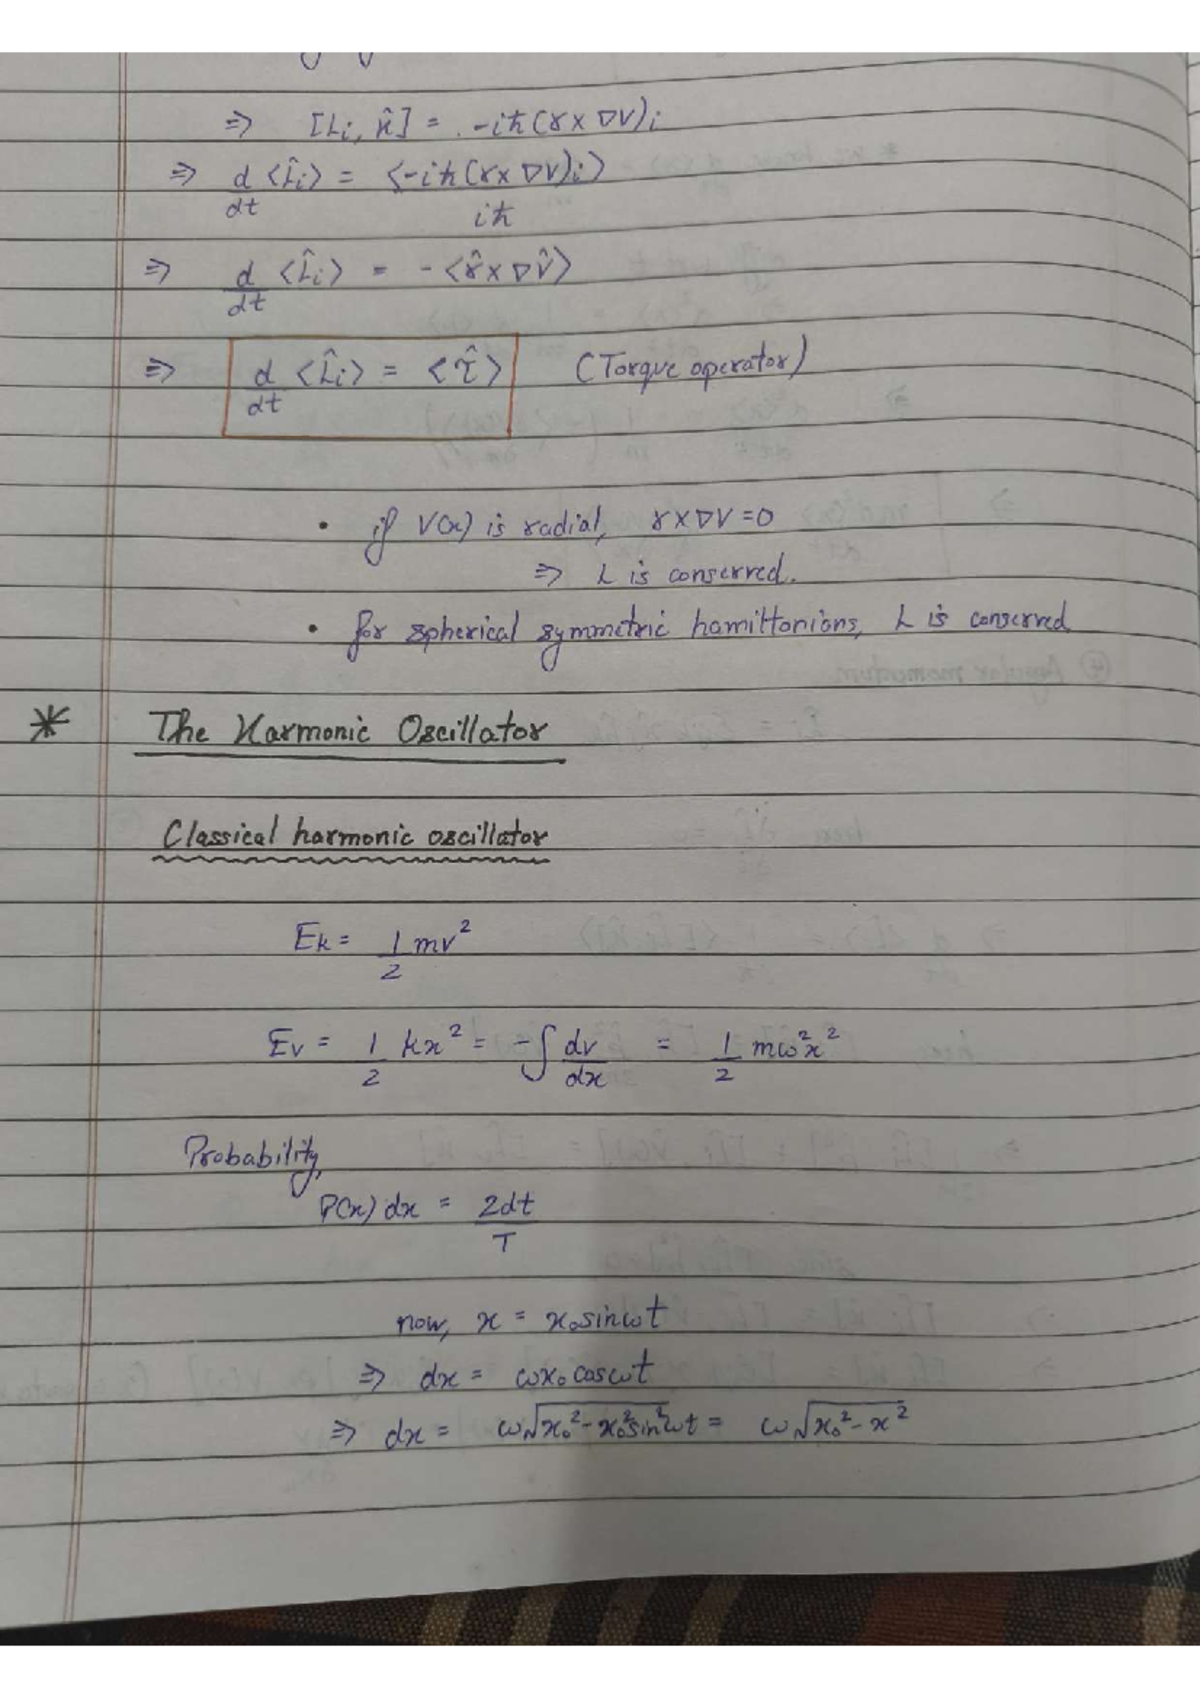 ⇒ [Li, Ĥ] = -iħ(r×∇V)i
⇒ d/dt <L̂i> = <-iħ(r×∇V)i> / iħ
⇒ d/dt <L̂i> = -<r̂×∇V̂>
⇒ d/dt <L̂i> = <τ̂> (Torque operator)
• if V(x) is radial, r×∇V=0
⇒ L is conserved.
• for spherical symmetric hamiltonians, L is conserved
* The Harmonic Oscillator
Classical harmonic oscillator
Ek = 1/2 mv²
Ev = 1/2 kx² = -∫ dv/dx = 1/2 mω²x²
Probability,
P(x)dx = 2dt/T
now, x = x₀sinωt
⇒ dx = ωx₀cosωt
⇒ dx = ω√(x₀²-x₀²sin²ωt) = ω√(x₀²-x²)